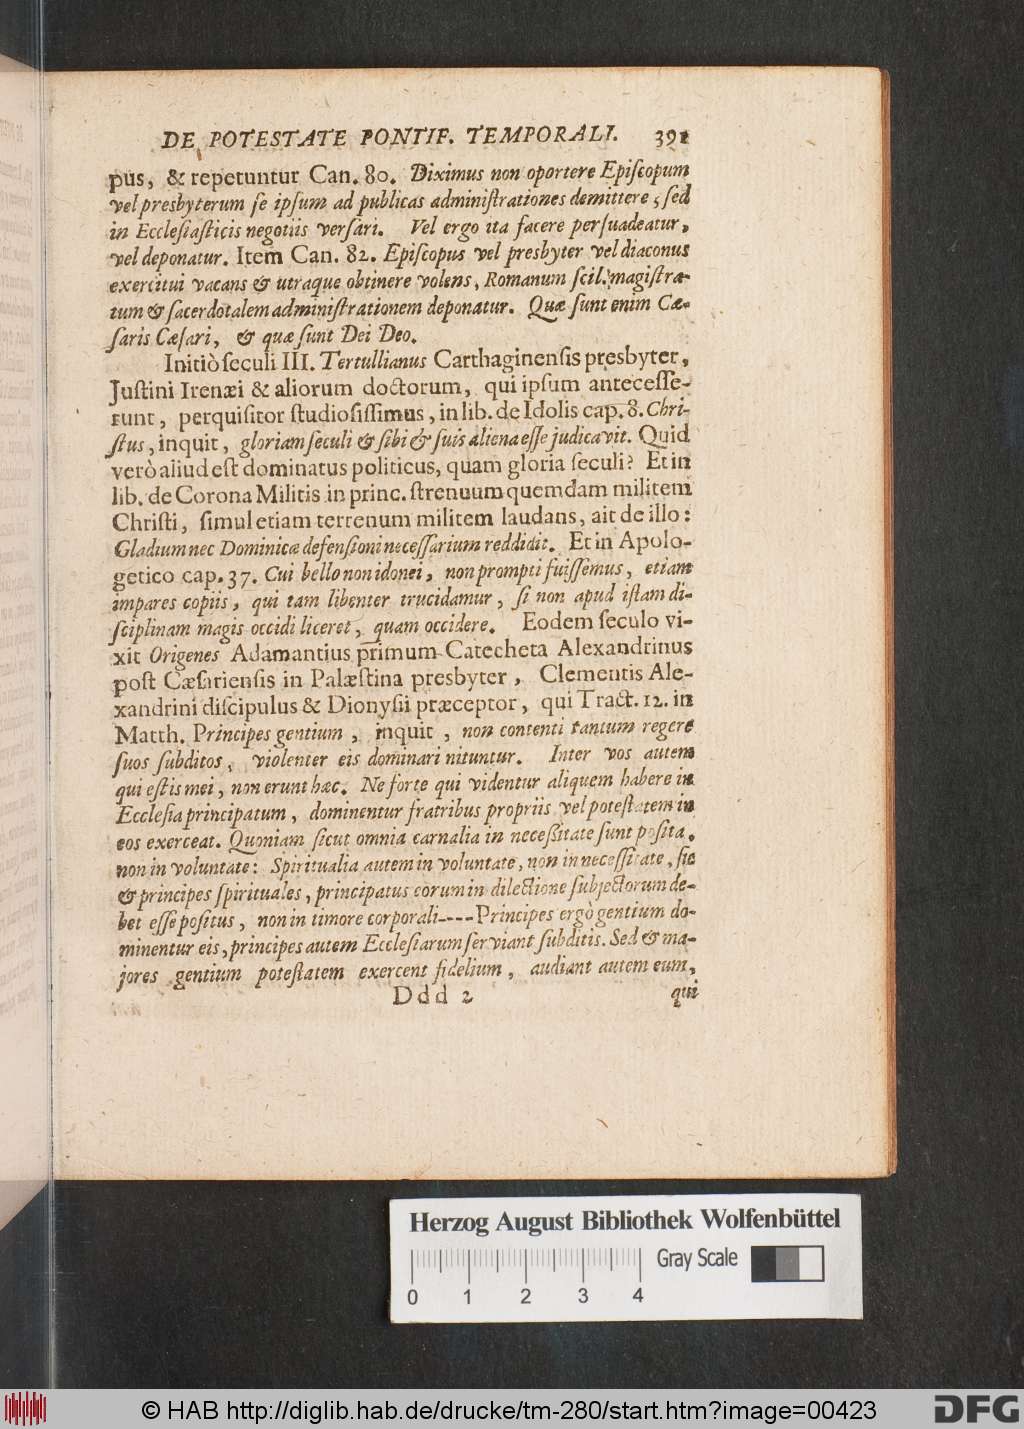 DE POTESTATE PONTIF. TEMPORALI. 391
pus, & repetuntur Can. 80. Diximus non oportere Epiſcopum
vel presbyterum ſe ipſum ad publicas adminiſtrationes demittere, ſed
in Eccleſiaſticis negotiis verſari. Vel ergo ita facere perſuadeatur,
vel deponatur. Item Can. 82. Epiſcopus vel presbyter vel diaconus
exercitui vacans & utraque obtinere volens, Romanum ſcil. magiſtra-
tum & ſacerdotalem adminiſtrationem deponatur. Quæ ſunt enim Cæ-
ſaris Cæſari, & quæ ſunt Dei Deo.
Initiò ſeculi III. Tertullianus Carthaginenſis presbyter,
Juſtini Irenæi & aliorum doctorum, qui ipſum anteceſſe-
runt, perquiſitor ſtudioſiſſimus, in lib. de Idolis cap. 8. Chri-
ſtus, inquit, gloriam ſeculi & ſibi & ſuis aliena eſſe judicavit. Quid
verò aliud eſt dominatus politicus, quam gloria ſeculi? Et in
lib. de Corona Militis in princ. ſtrenuum quemdam militem
Chriſti, ſimul etiam terrenum militem laudans, ait de illo:
Gladium nec Dominicæ defenſioni neceſſarium reddidit. Et in Apolo-
getico cap. 37. Cui bello non idonei, non prompti fuiſſemus, etiam
impares copiis, qui tam libenter trucidamur, ſi non apud iſtam di-
ſciplinam magis occidi liceret, quam occidere. Eodem ſeculo vi-
xit Origenes Adamantius primum Catecheta Alexandrinus
poſt Cæſarienſis in Palæſtina presbyter, Clementis Ale-
xandrini diſcipulus & Dionyſii præceptor, qui Tract. 12. in
Matth. Principes gentium, inquit, non contenti tantum regere
ſuos ſubditos, violenter eis dominari nituntur. Inter vos autem
qui eſtis mei, non erunt hæc. Ne forte qui videntur aliquem habere in
Eccleſia principatum, dominentur fratribus propriis vel poteſtatem in
eos exerceat. Quoniam ſicut omnia carnalia in neceßitate ſunt poſita,
non in voluntate: Spiritualia autem in voluntate, non in neceſſitate, ſic
& principes ſpirituales, principatus eorum in dilectione ſubjectorum de-
bet eſſe poſitus, non in timore corporali---- Principes ergò gentium do-
minentur eis, principes autem Eccleſiarum ſerviant ſubditis. Sed & ma-
jores gentium poteſtatem exercent fidelium, audiant autem eum,
Ddd 2 qui
Herzog August Bibliothek Wolfenbüttel
Gray Scale
0 1 2 3 4
© HAB http://diglib.hab.de/drucke/tm-280/start.htm?image=00423
DFG